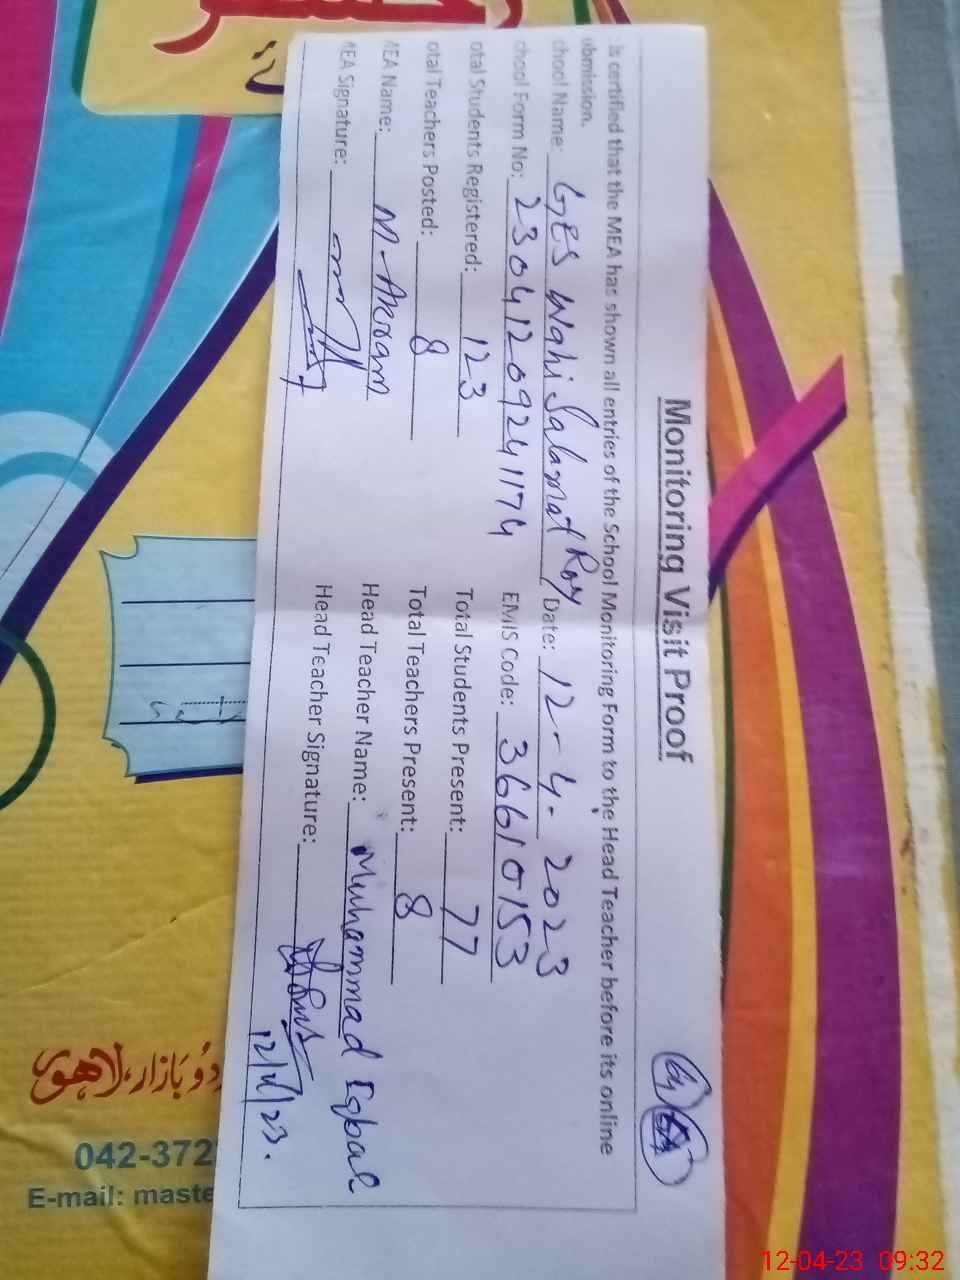 Monitoring Visit Proof
is certified that the MEA has shown all entries of the School Monitoring Form to the Head Teacher before its online
ubmission.
chool Name: GES Wahi Salamat Ray Date: 12-4-2023
chool Form No: 23041209241174 EMIS Code: 36610153
otal Students Registered: 123 Total Students Present: 77
otal Teachers Posted: 8 Total Teachers Present: 8
MEA Name: M-Akram Head Teacher Name: Muhammad Iqbal
MEA Signature: Head Teacher Signature:
12/4/23.
دُو بَازَار، لاهور
042-372
E-mail: maste
12-04-23 09:32